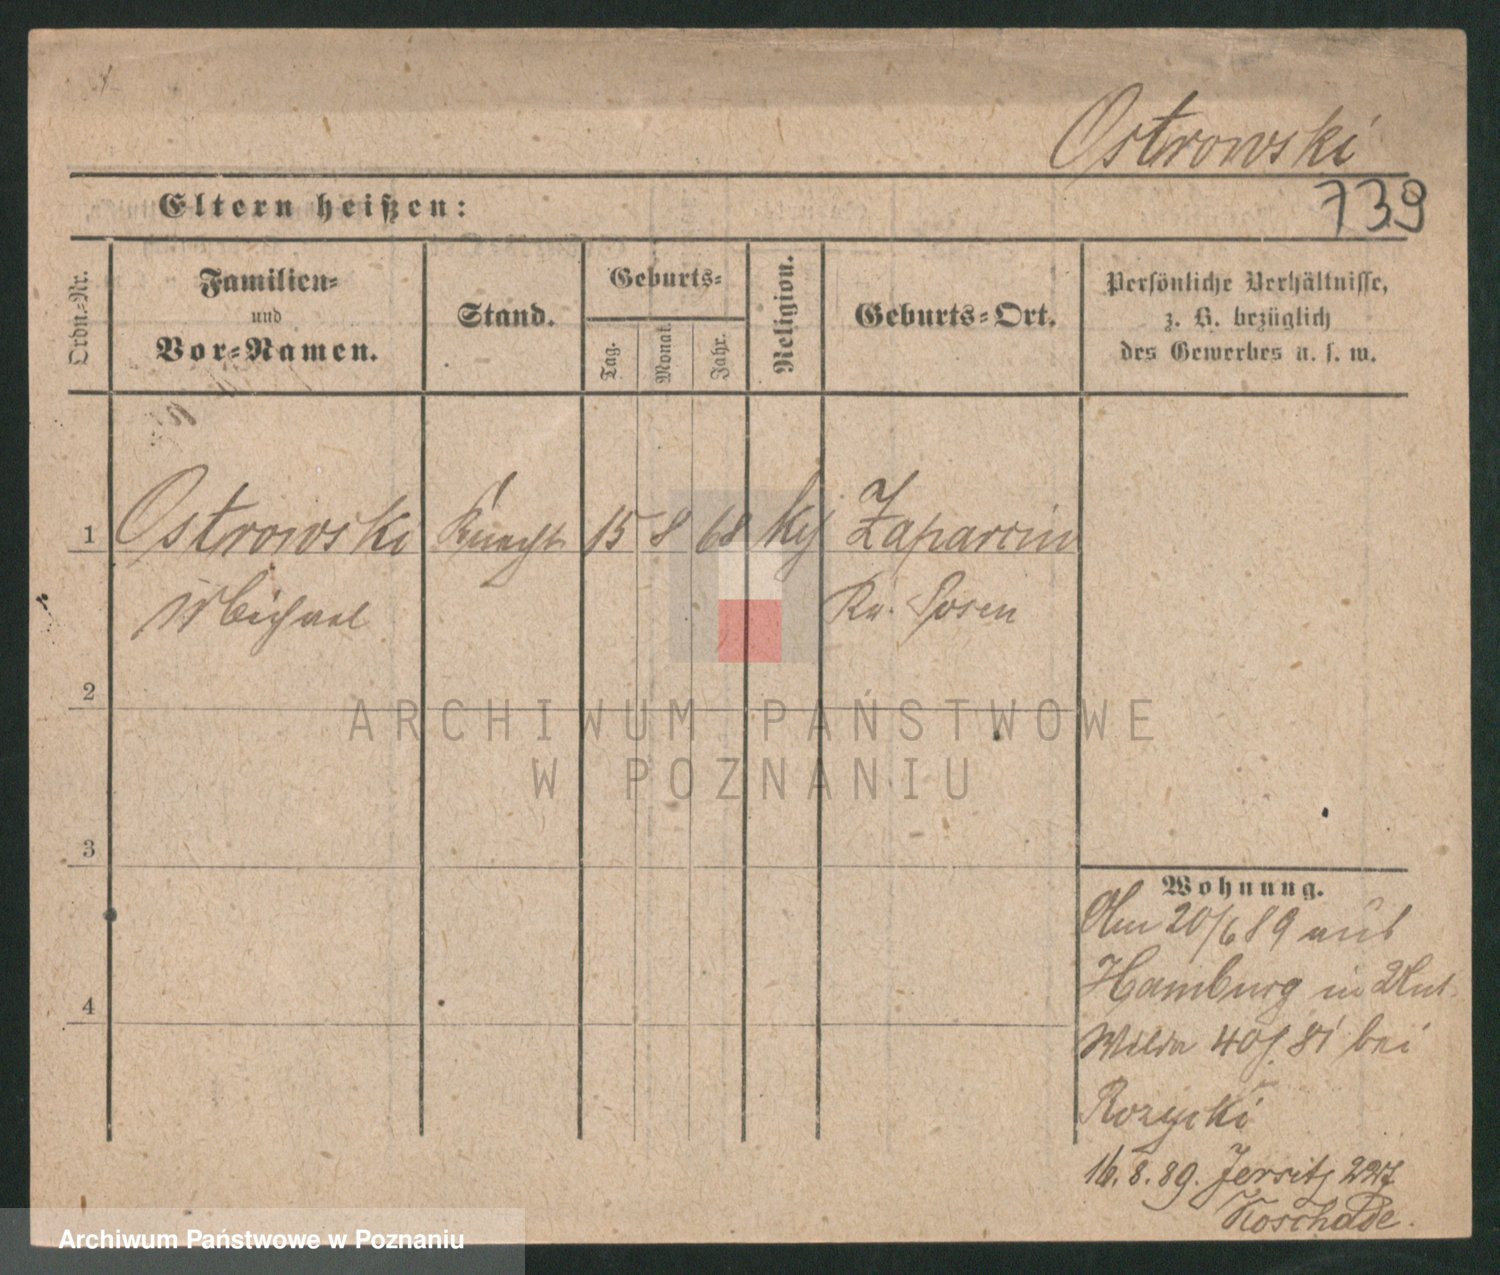 Ostrowski
739
Eltern heißen:
Ordn.-Nr.
Familien-
und
Vor-Namen.
Stand.
Geburts-
Tag.
Monat.
Jahr.
Religion.
Geburts-Ort.
Persönliche Verhältnisse,
z. B. bezüglich
des Gewerbes u. s. w.
1
Ostrowski Knecht 15 8 68
Michael
Kr. Posen
2
3
4
ARCHIWUM PAŃSTWOWE
W POZNANIU
Wohnung.
Am 20/6 89 aus
Hamburg in Unt.
Wilda 40/81 bei
Rozycki
16.8.89. Jersitz
Koschade.
Archiwum Państwowe w Poznaniu